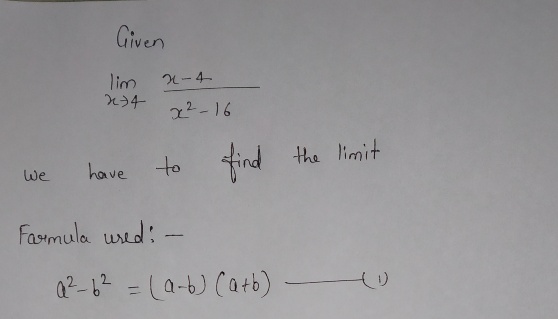 Given
lim x-4
x→4 x²-16
we have to find the limit
Formula used: —
a²-b² = (a-b) (a+b) —— (1)